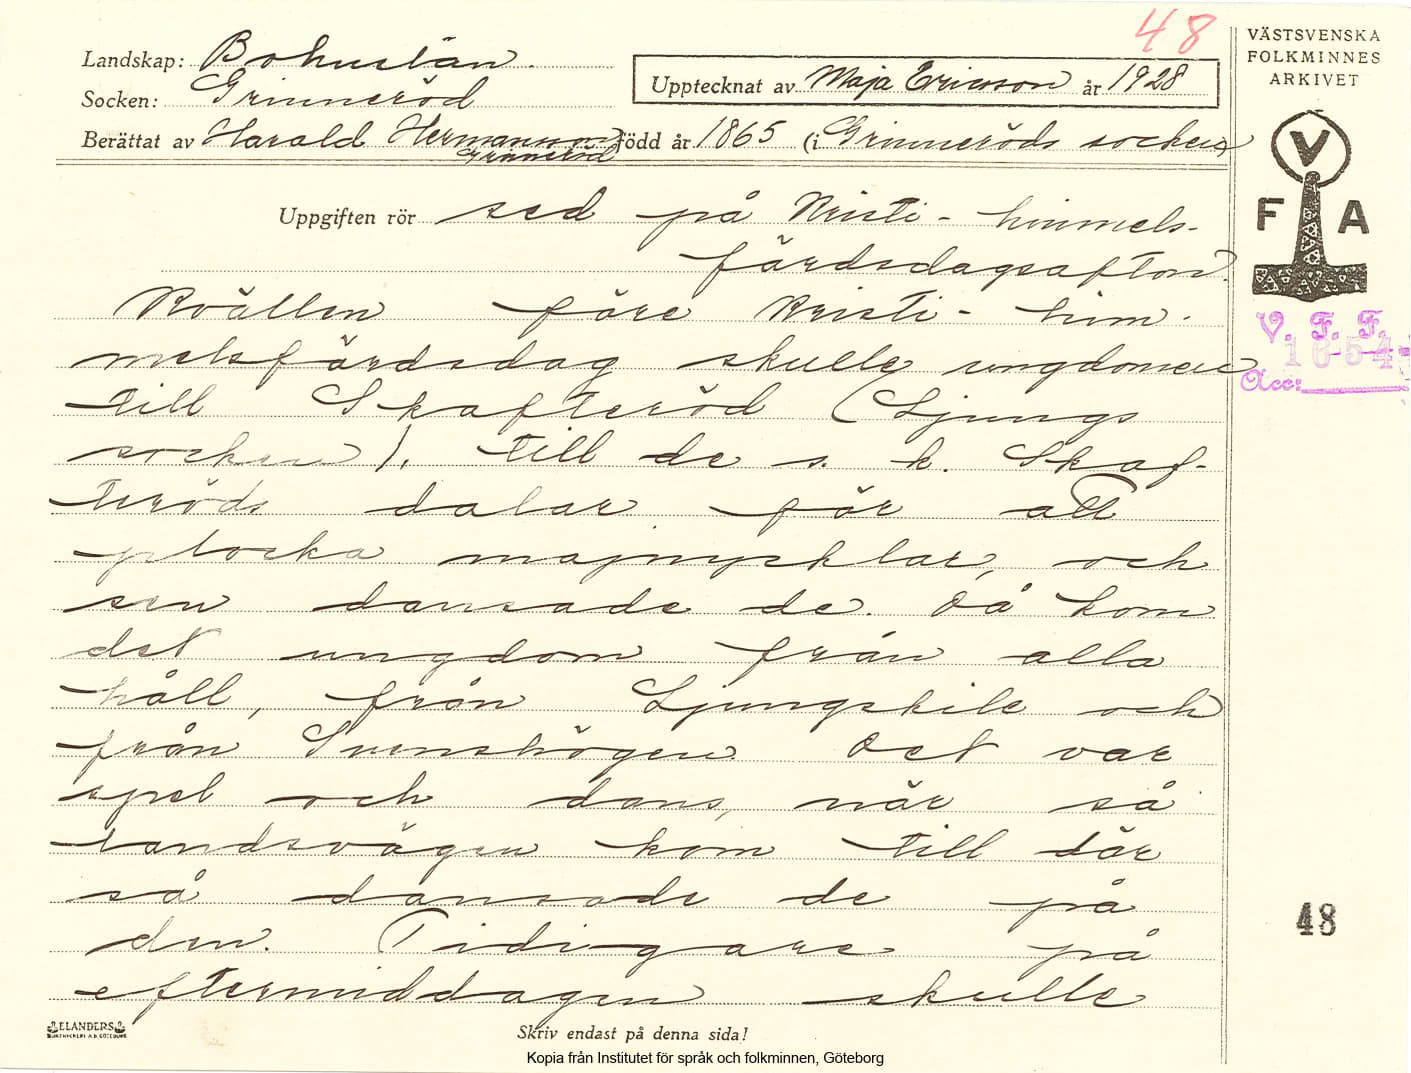 48
Landskap: Bohuslän.
Socken: Grinneröd
Upptecknat av Maja Ericson år 1928
Berättat av Harald Hermansson född år 1865 (i Grinneröds socken)
Grinneröd
VÄSTSVENSKA
FOLKMINNES
ARKIVET
V
F A
V. F. F.
1654
Acc:
Uppgiften rör sed på Kristi-himmels-
färdsdagsafton.
Kvällen före Kristi-him-
melsfärdsdag skulle ungdomen
till Skafteröd (Ljungs
socken), till de s. k. Skaf-
teröds dalar för att
plocka majnycklar, och
sen dansade de. Då kom
det ungdom från alla
håll, från Ljungskile och
från Svenshögen. Det var
spel och dans, när så
landsvägen kom till där
så dansade de på
den. Tidigare på
eftermiddagen skulle
48
ELANDERS
BOKTRYCKERI A.B. GÖTEBORG
Skriv endast på denna sida!
Kopia från Institutet för språk och folkminnen, Göteborg